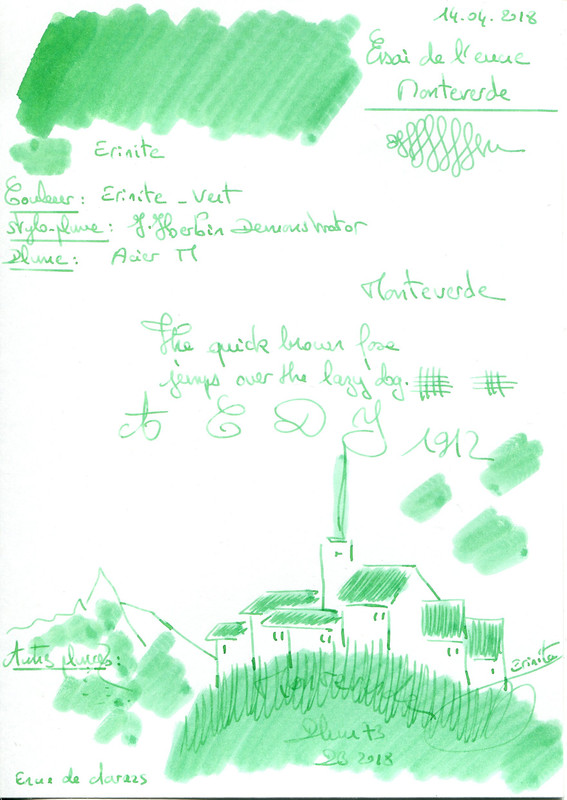 14.04.2018
Essai de l'encre
Monteverde
Erinite
Couleur: Erinite - Vert
Stylo-plume: J. Herbin Demonstrator
Plume: Acier M
Monteverde
The quick brown foxe
jumps over the lazy dog.
A E D J 1912
Erinite
Plum73
2018